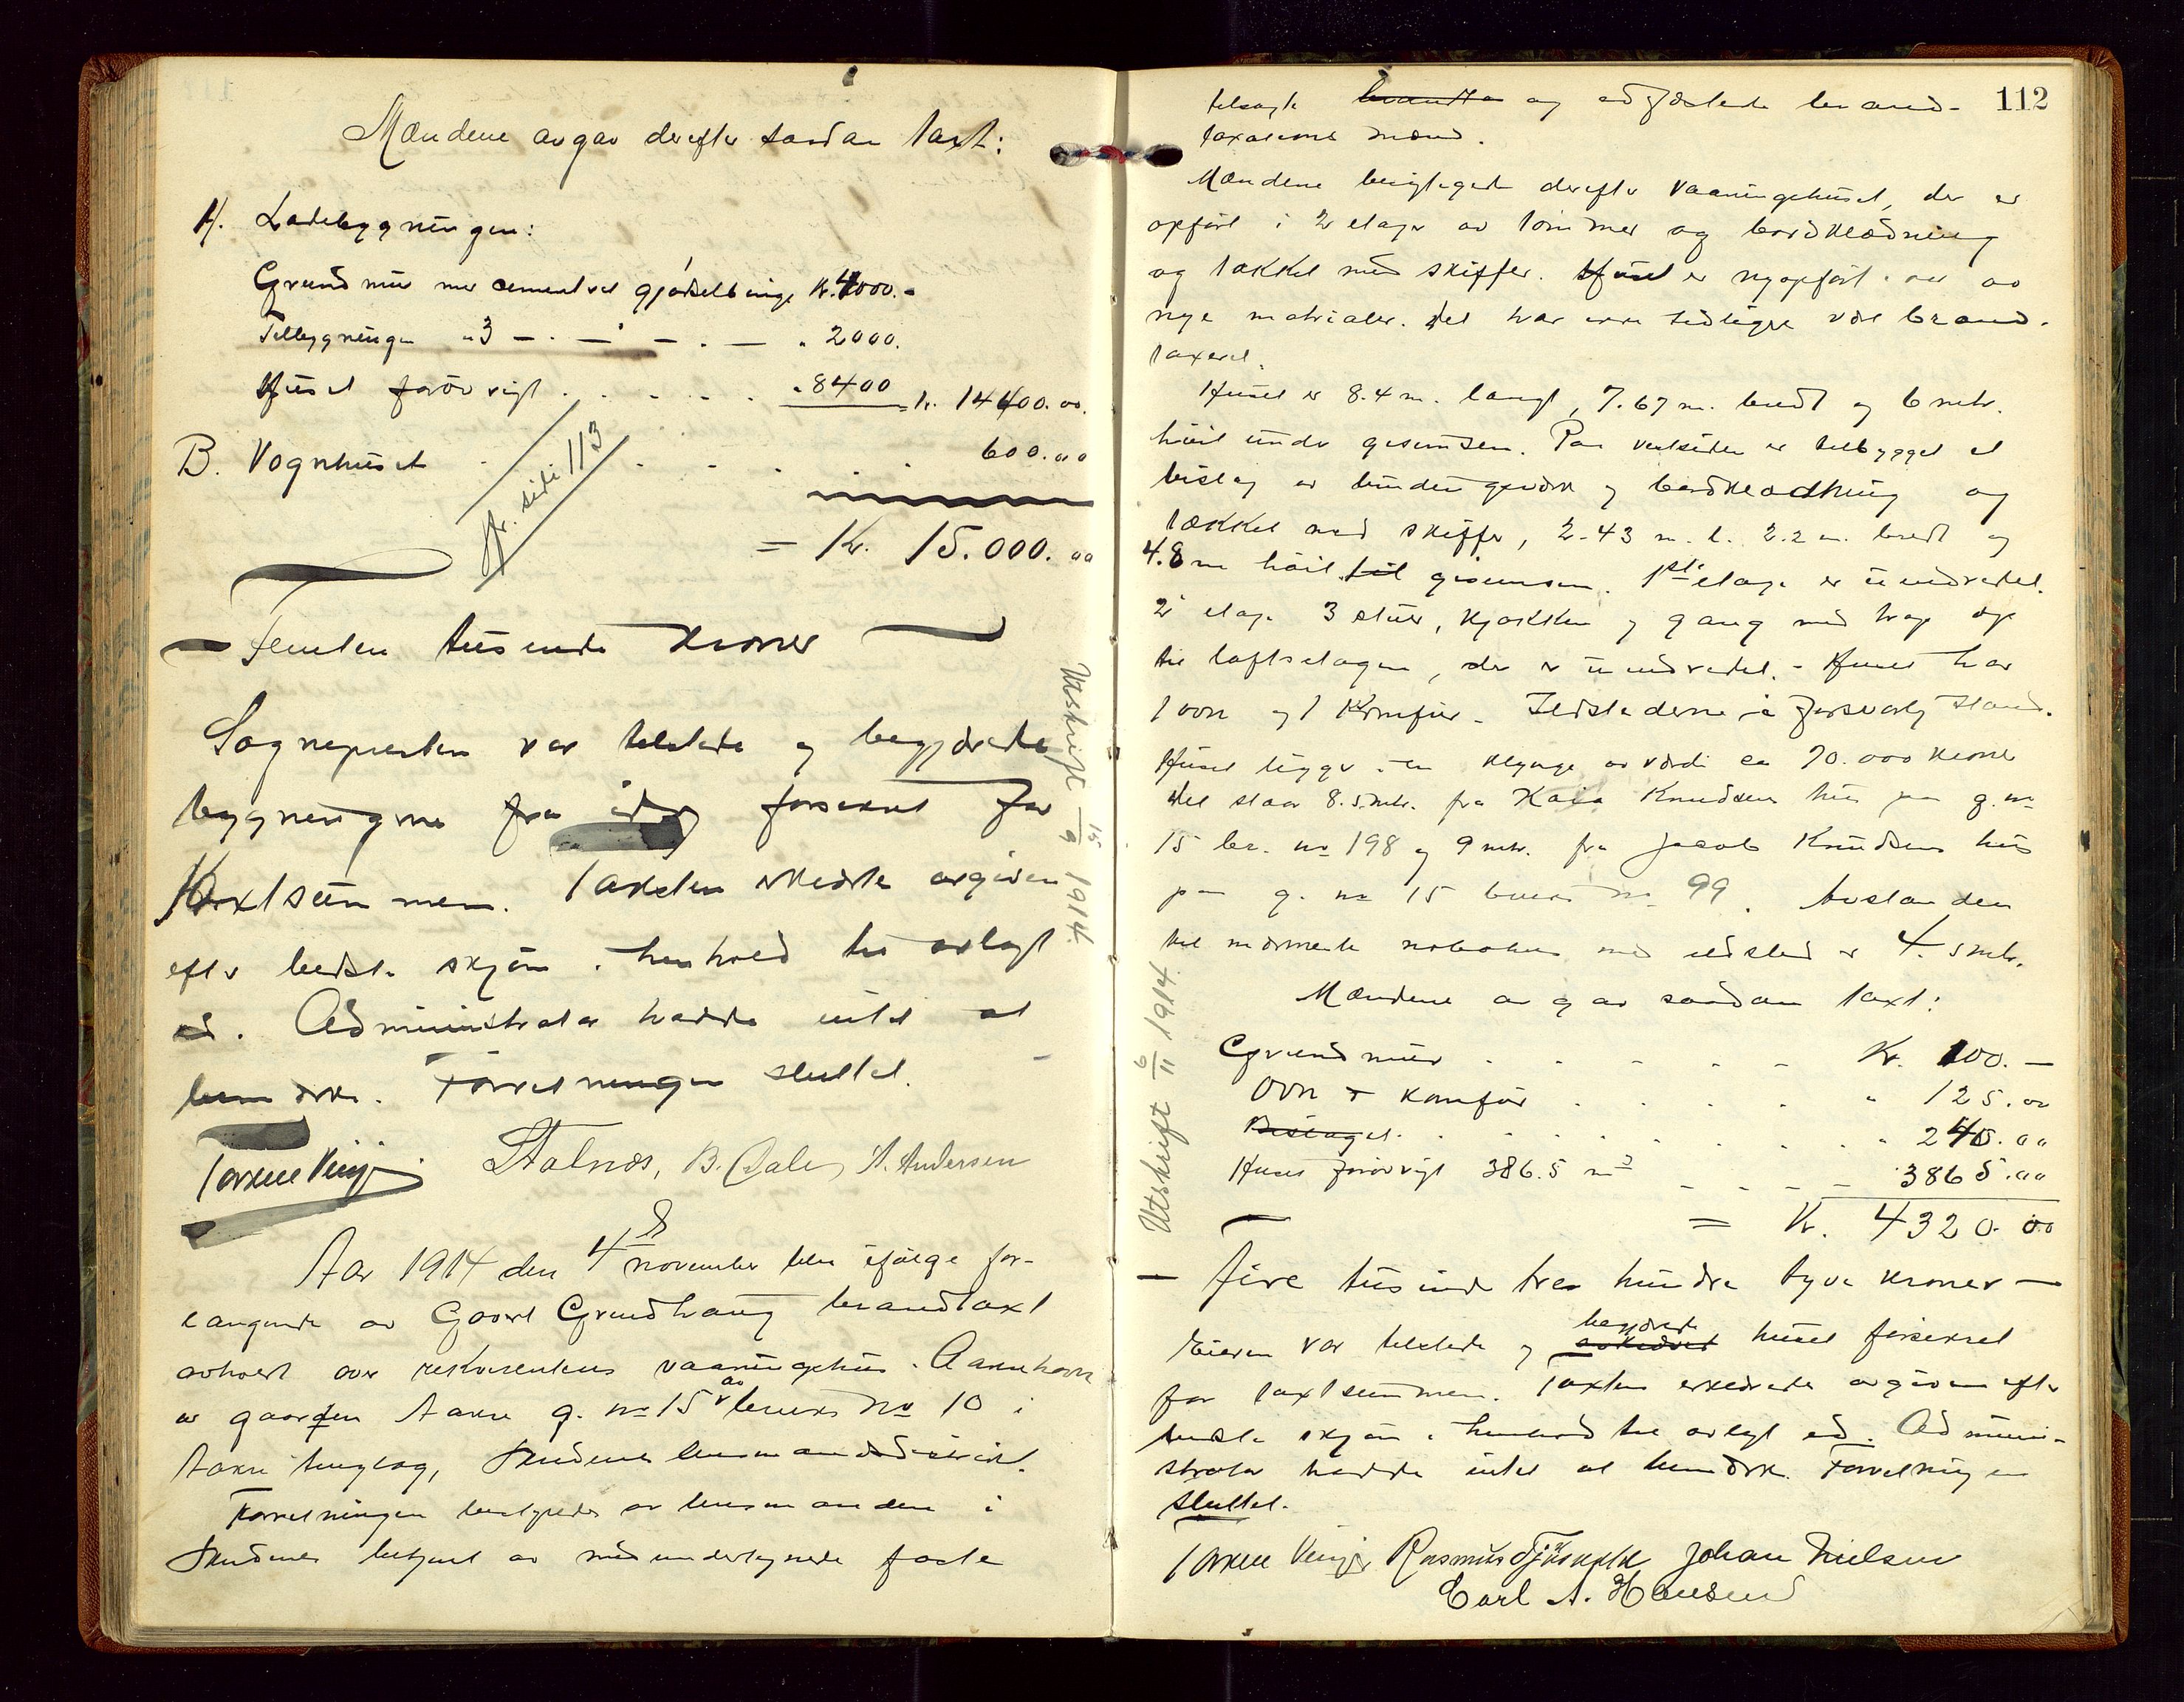 Mændene avgav derefter saadan taxt:
A. Ladebygningen:
Grundmur med cementert gjødselbinge Kr. 4000.-
Tilbygningen "3 — . — . — . — " 2000.
Huset forøvrigt . . . . . " 8400 = kr. 14400.00.
B. Vognhuset . . . . . . 600.00
jfr. side 113
= Kr. 15.000.00
— Femten tusinde kroner —
Sognepresten var tilstede og begjærede
bygningerne fra idag forsikret for
taxtsummen. Taksten erklæres avgiven
efter bedste skjøn i henhold til avlagt
ed. Administrator hadde intet at
bemærke. Forretningen sluttet.
Utskrift 15/9 1914.
Torkel Vinje Stalnes, B. Dale, A. Andersen
Aar 1914 den 4de november blev ifølge for-
langende av Gaard Grindhaug brandtaxt
avholdt over rekvirentens vaaningshus i Aakrehavn
av gaarden Aakre g. no 15 av bruks No 10 i
Aakre tinglag, Skudenes lensmandsdistrikt.
Forretningen bestyredes av lensmanden i
Skudenes betjent av medundertegnede faste
112
tilsagte brandta og edfæstede brand-
taxations mænd.
Mændene besigtigede derefter vaaningshuset, der er
opført i 2 etager av tømmer og bordklædning
og tækket med skiffer. Huset er nyopført i aar av
nye materialer. Det har ikke tidligere vært brand-
taxeret.
Huset er 8.4 m. langt, 7.67 m. bredt og 6 mtr.
høit under gesimsen. Paa vestsiden er tilbygget et
bislag av bindingsverk og bordklædning og
tækket med skiffer, 2.43 m. l. 2.2 m. bredt og
4.8 m høit til gesimsen. 1ste etage er uindredet.
2' etage 3 stuer, kjøkken og gang med trap op
til loftsetagen, der er uindredet. - Huset har
1 ovn og 1 komfur. Ildstederne i forsvarlig stand.
Huset ligger i en klynge av værdi ca 70.000 kroner
Det staar 8.5 mtr. fra Kaia Knudsens hus paa g. no
15 br. no 198 og 9 mtr. fra Jacob Knudsens hus
paa g. no 15 bruks no 99. Avstanden
til nærmeste nabohus med ildsted er 4.5 mtr.
Mændene avgav saadan taxt:
Grundmur . . . . . Kr. 100.—
Ovn & komfür . . . . " 125.00
Bislaget . . . . . . " 240.00
Huset forøvrigt 386.5 m3 — — — 3865.00
= Kr. 4320.00
Utskrift 6/11 1914.
— Fire tusinde tre hundre tyve kroner —
Eieren var tilstede og begjærede huset forsikret
for taxtsummen. Taxten erklæredes avgiven efter
bedste skjøn i henhold til avlagt ed. Admini-
strator hadde intet at bemærke. Forretningen
sluttet.
Torkel Vinje Rasmus Johan Nielsen
Carl A. Hansen